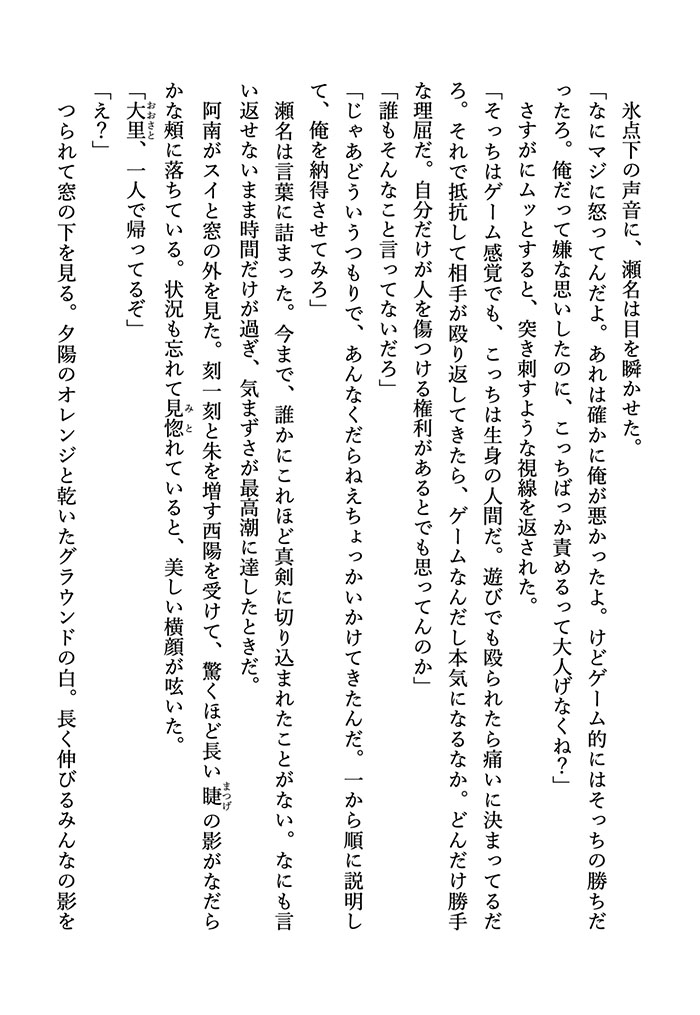 氷点下の声音に、瀬名は目を瞬かせた。
「なにマジに怒ってんだよ。あれは確かに俺が悪かったよ。けどゲーム的にはそっちの勝ちだ
ったろ。俺だって嫌な思いしたのに、こっちばっか責めるって大人げなくね？」
さすがにムッとすると、突き刺すような視線を返された。
「そっちはゲーム感覚でも、こっちは生身の人間だ。遊びでも殴られたら痛いに決まってるだ
ろ。それで抵抗して相手が殴り返してきたら、ゲームなんだし本気になるなか。どんだけ勝手
な理屈だ。自分だけが人を傷つける権利があるとでも思ってんのか」
「誰もそんなこと言ってないだろ」
「じゃあどういうつもりで、あんなくだらねえちょっかいかけてきたんだ。一から順に説明し
て、俺を納得させてみろ」
瀬名は言葉に詰まった。今まで、誰かにこれほど真剣に切り込まれたことがない。なにも言
い返せないまま時間だけが過ぎ、気まずさが最高潮に達したときだ。
阿南がスイと窓の外を見た。刻一刻と朱を増す西陽を受けて、驚くほど長い睫まつげの影がなだら
かな頰に落ちている。状況も忘れて見惚みとれていると、美しい横顔が呟いた。
「大里おおさと、一人で帰ってるぞ」
「え？」
つられて窓の下を見る。夕陽のオレンジと乾いたグラウンドの白。長く伸びるみんなの影を